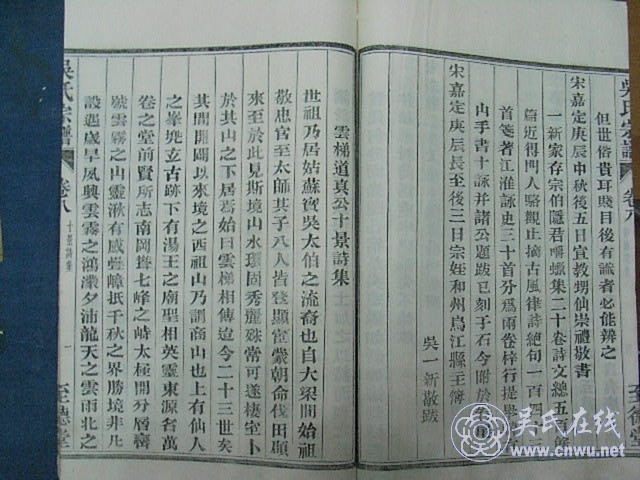 吳氏宗譜
卷八
至德堂
但世俗貴耳賤目後有識者必能辨之
宋嘉定庚辰申秋後五日宣教甥仙崇禮敬書
一新家存宗伯隱君嚼蠟集二十卷詩文總五
篇近得問人駱觀止摘古風律詩絕句一百四十
首箋著江淮詠史三十首分爲兩卷梓行提學
山手書十詠并諸公題跋已刻于石今附於
宋嘉定庚辰長至後三日宗姪和州烏江縣主簿
吳一新敬跋
雲梯道真公十景詩集
世祖乃居姑蘇寶吳太伯之流裔也自大梁間始祖
敬忠官至太師其子八人皆登顯宦蒙朝命伐田顯
來至於此見斯境山水環固秀麗殊常可遂棲室卜
於其山之下居焉始曰雲梯相傳迨今二十三世矣
其間開闢以來境之西祖山乃訓商山也上有仙人
之峯兠立古跡下有湯王之廟聖相英靈東源者萬
卷之堂前賢所志南岡聳七峰之峙太極開分層
號雲霧之山靈湫有感疊嶂抵千秋之界勝境非凡
設遇歲旱夙興雲霧之鴻濛夕沛龍天之雲雨北之
吳氏宗譜
卷八
十景詩集
一
至德堂
吴氏在线
www.cnwu.net